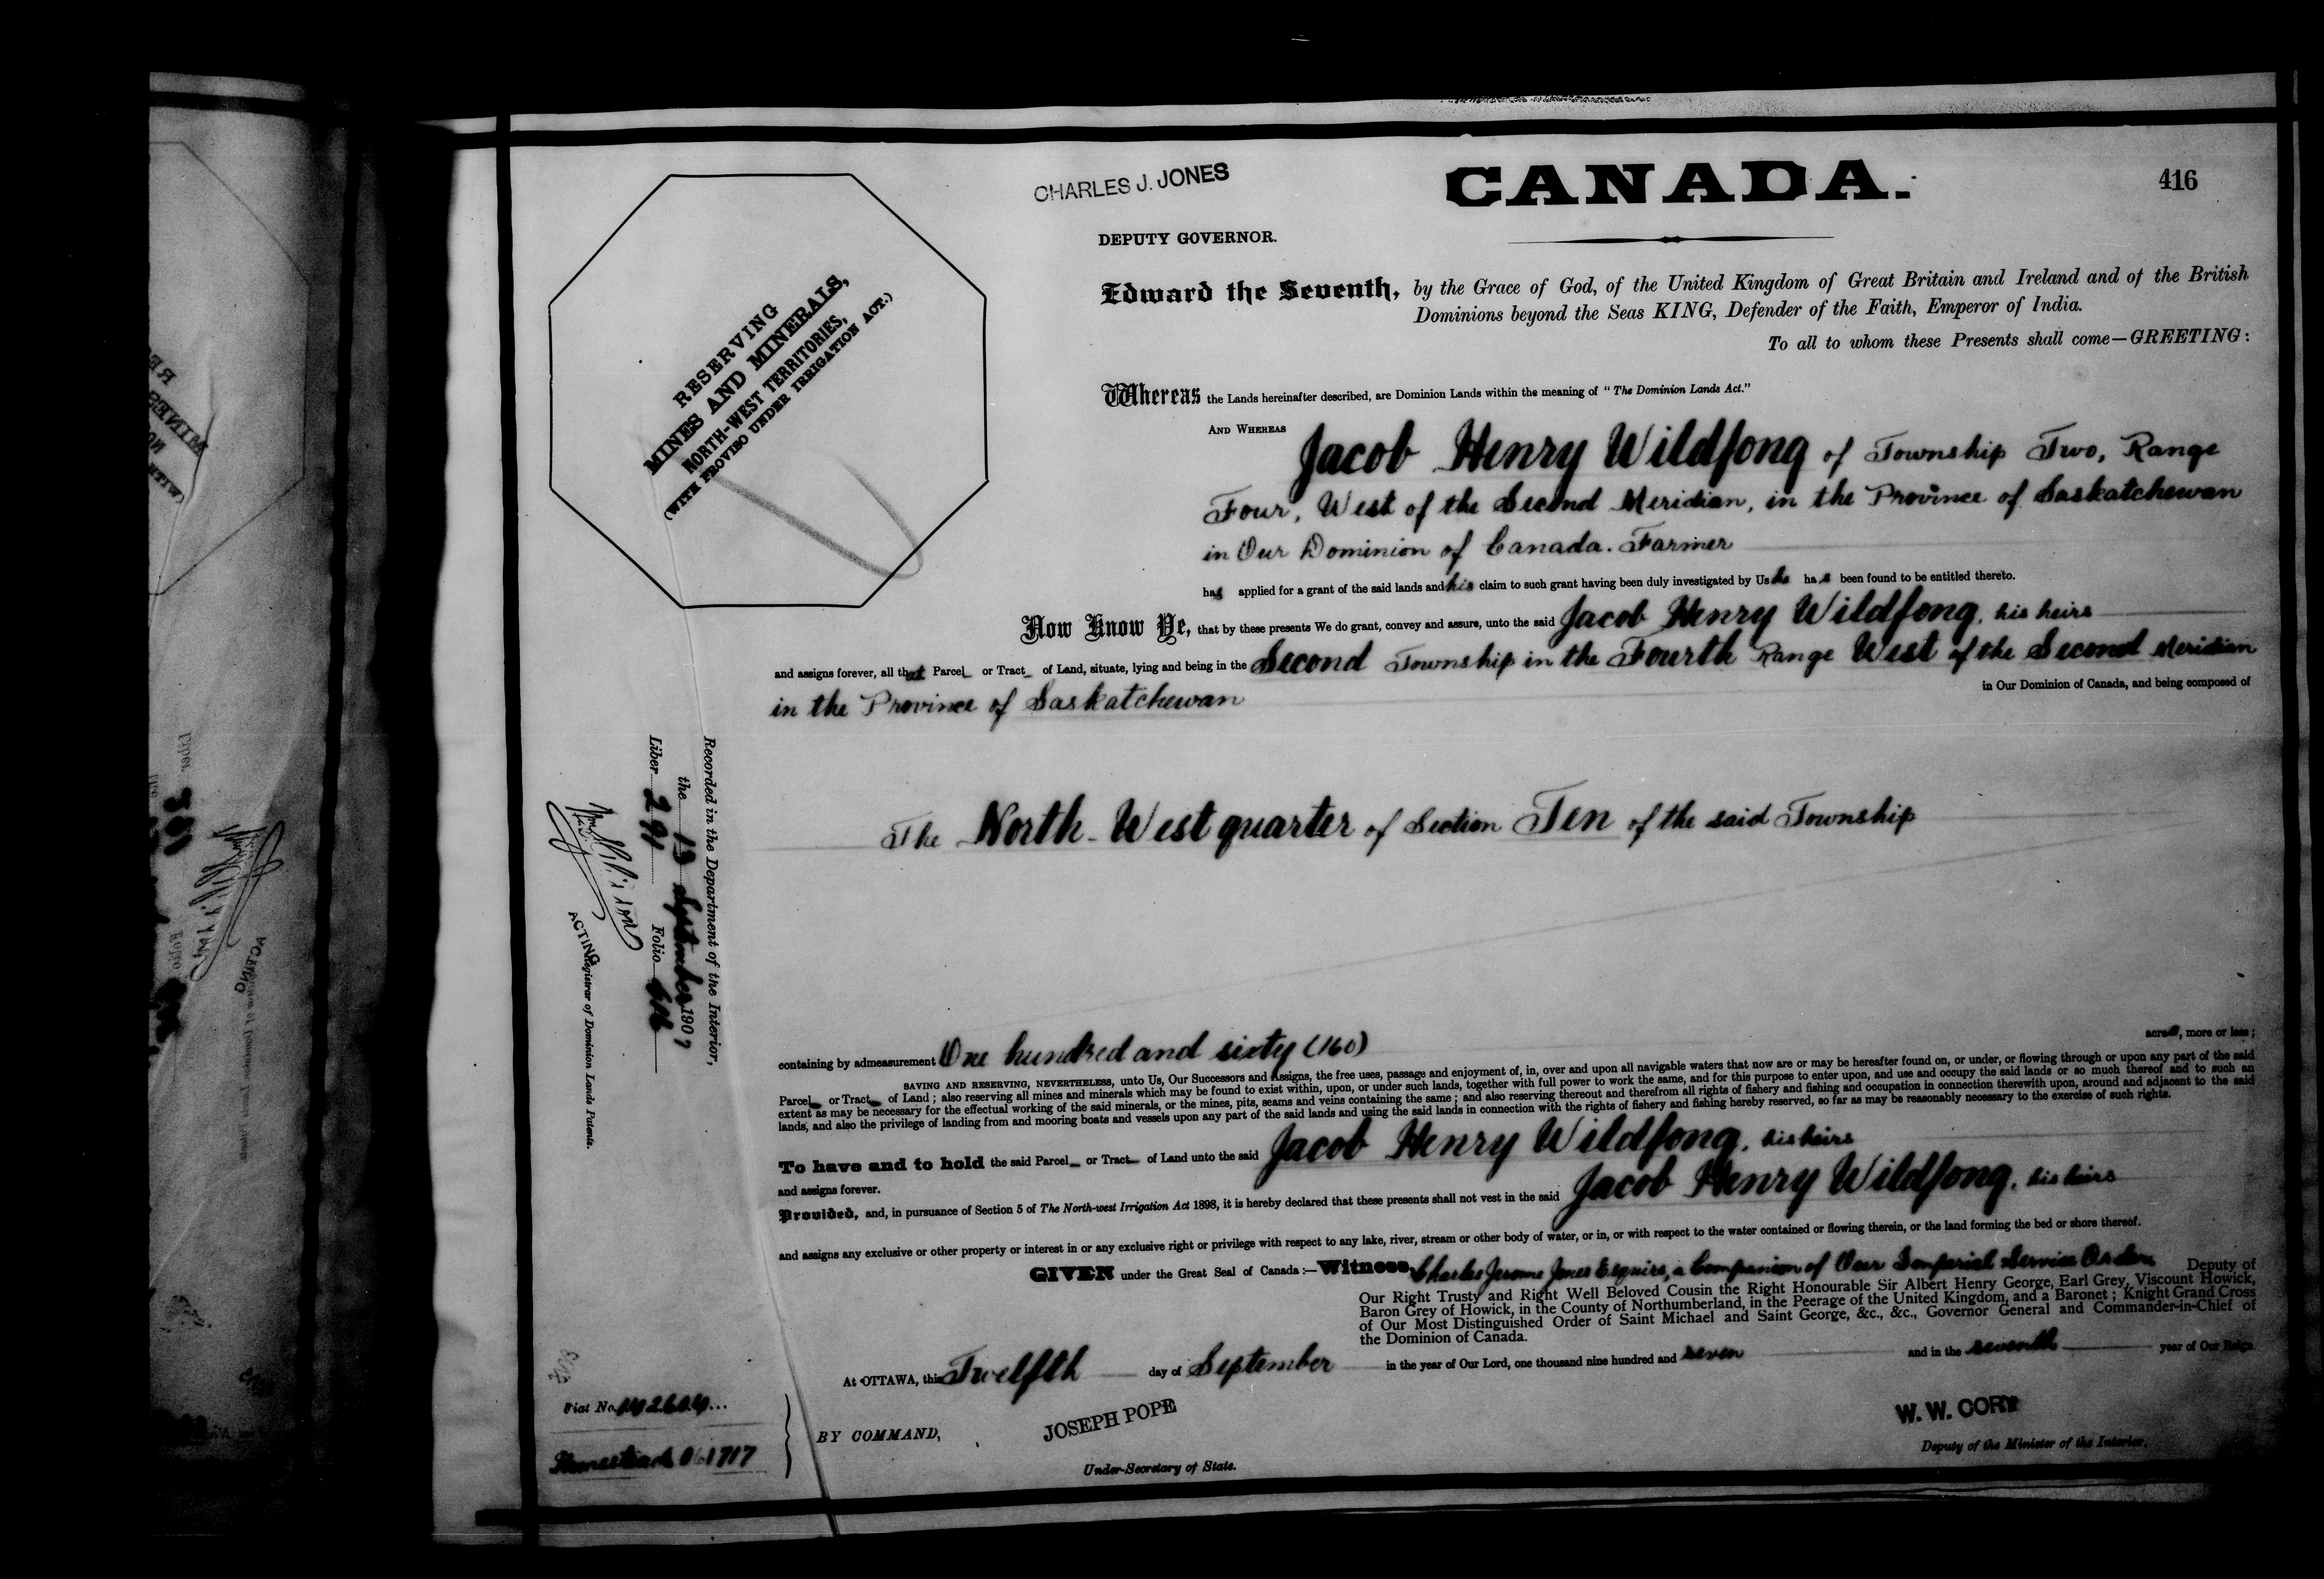 CHARLES J. JONES
CANADA.
416
DEPUTY GOVERNOR.
RESERVING
MINES AND MINERALS,
NORTH-WEST TERRITORIES,
(WITH PROVISO UNDER IRRIGATION ACT.)
Edward the Seventh, by the Grace of God, of the United Kingdom of Great Britain and Ireland and of the British
Dominions beyond the Seas KING, Defender of the Faith, Emperor of India.
To all to whom these Presents shall come—GREETING:
Whereas the Lands hereinafter described, are Dominion Lands within the meaning of "The Dominion Lands Act."
AND WHEREAS Jacob Henry Wildfong of Township Two, Range
Four, West of the Second Meridian, in the Province of Saskatchewan
in Our Dominion of Canada. Farmer
has applied for a grant of the said lands and his claim to such grant having been duly investigated by Us he has been found to be entitled thereto.
Now Know Ye, that by these presents We do grant, convey and assure, unto the said Jacob Henry Wildfong, his heirs
and assigns forever, all that Parcel or Tract of Land, situate, lying and being in the Second Township in the Fourth Range West of the Second Meridian
in the Province of Saskatchewan in Our Dominion of Canada, and being composed of
The North-West quarter of Section Ten of the said Township
Recorded in the Department of the Interior,
the 13 September 1907
Liber 291 Folio
ACTING Registrar of Dominion Lands Patents.
containing by admeasurement One hundred and sixty (160) acres, more or less;
SAVING AND RESERVING, NEVERTHELESS, unto Us, Our Successors and Assigns, the free uses, passage and enjoyment of, in, over and upon all navigable waters that now are or may be hereafter found on, or under, or flowing through or upon any part of the said
Parcel or Tract of Land; also reserving all mines and minerals which may be found to exist within, upon, or under such lands, together with full power to work the same, and for this purpose to enter upon, and use and occupy the said lands or so much thereof and to such an
extent as may be necessary for the effectual working of the said minerals, or the mines, pits, seams and veins containing the same; and also reserving thereout and therefrom all rights of fishery and fishing and occupation in connection therewith upon, around and adjacent to the said
lands, and also the privilege of landing from and mooring boats and vessels upon any part of the said lands and using the said lands in connection with the rights of fishery and fishing hereby reserved, so far as may be reasonably necessary to the exercise of such rights.
To have and to hold the said Parcel or Tract of Land unto the said Jacob Henry Wildfong, his heirs
and assigns forever.
Provided, and, in pursuance of Section 5 of The North-west Irrigation Act 1898, it is hereby declared that these presents shall not vest in the said Jacob Henry Wildfong, his heirs
and assigns any exclusive or other property or interest in or any exclusive right or privilege with respect to any lake, river, stream or other body of water, or in, or with respect to the water contained or flowing therein, or the land forming the bed or shore thereof.
GIVEN under the Great Seal of Canada:—Witness, Charles Jerome Jones Esquire, a Companion of Our Imperial Service Order, Deputy of
Our Right Trusty and Right Well Beloved Cousin the Right Honourable Sir Albert Henry George, Earl Grey, Viscount Howick,
Baron Grey of Howick, in the County of Northumberland, in the Peerage of the United Kingdom, and a Baronet; Knight Grand Cross
of Our Most Distinguished Order of Saint Michael and Saint George, &c., &c., Governor General and Commander-in-Chief of
the Dominion of Canada.
At OTTAWA, this Twelfth day of September in the year of Our Lord, one thousand nine hundred and seven and in the seventh year of Our Reign
Fiat No. 142604
Homestead 061717
BY COMMAND,
JOSEPH POPE
Under-Secretary of State.
W. W. CORY
Deputy of the Minister of the Interior.